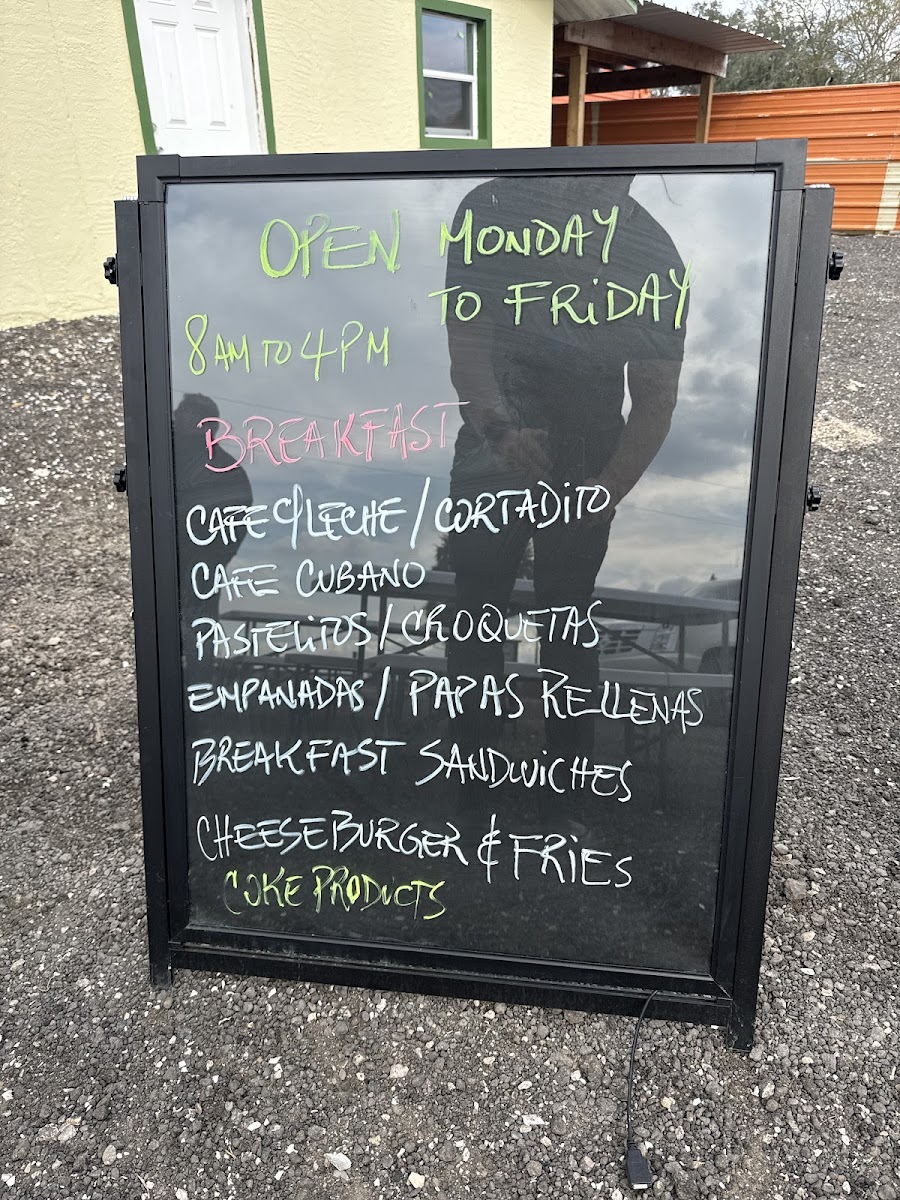 OPEN MONDAY
TO FRiDAY
8AM TO 4PM
BREAKFAST
CAFE C/LECHE / CORTADiTO
CAFE CUBANO
PASTELiTOS / CROQUETAS
EMPANADAS / PAPAS RELLENAS
BREAKFAST SANDWiCHES
CHEESEBURGER & FRiES
COKE PRODUCTS